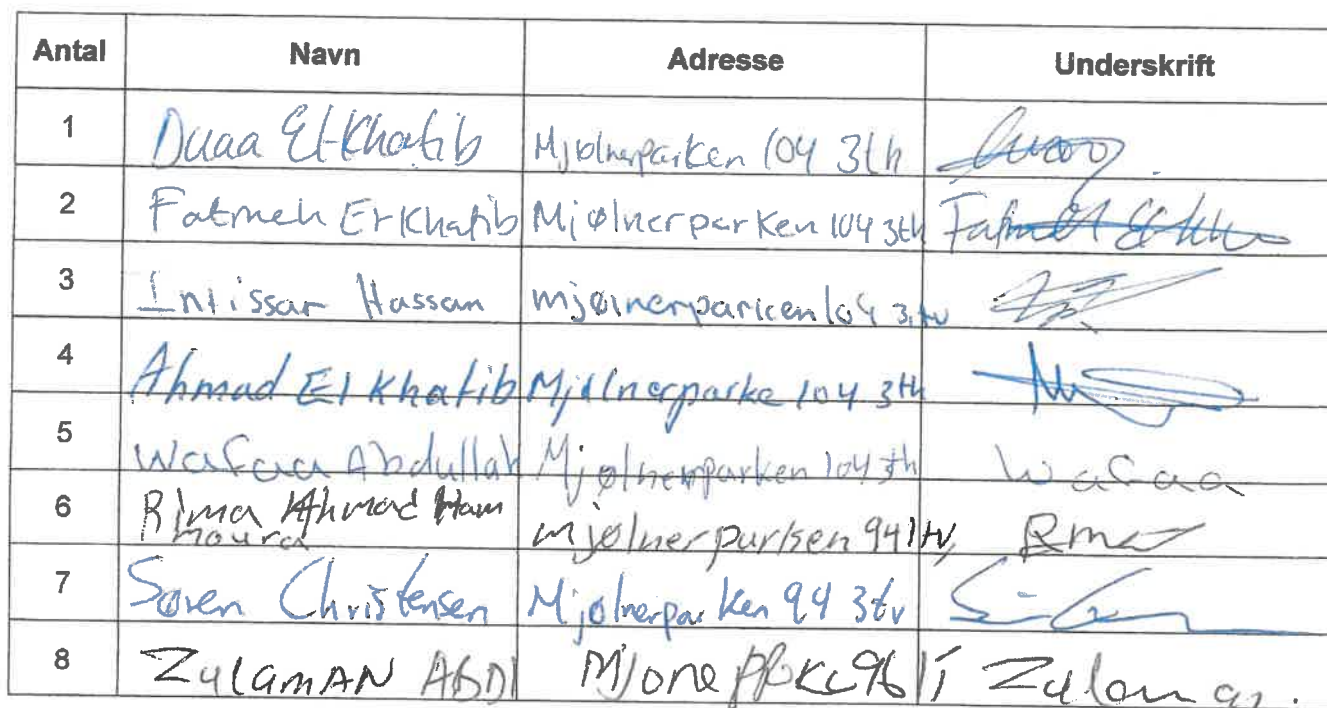 Antal Navn Adresse Underskrift
1 Duaa El-Khatib Mjølnerparken 104 3th
2 Fatmeh El Khatib Mjølnerparken 104 3th Fatmeh El
3 Intissar Hassan mjølnerparken 104 3.tv
4 Ahmad El Khatib Mjølnerparke 104 3th
5 Wafaa Abdullah Mjølnerparken 104 th Wafaa
6 Rima Ahmad Ham
moura mjølnerparken 94 1tv,
7 Søren Christensen Mjølnerparken 94 3tv
8 ZulamAN ABDI 96